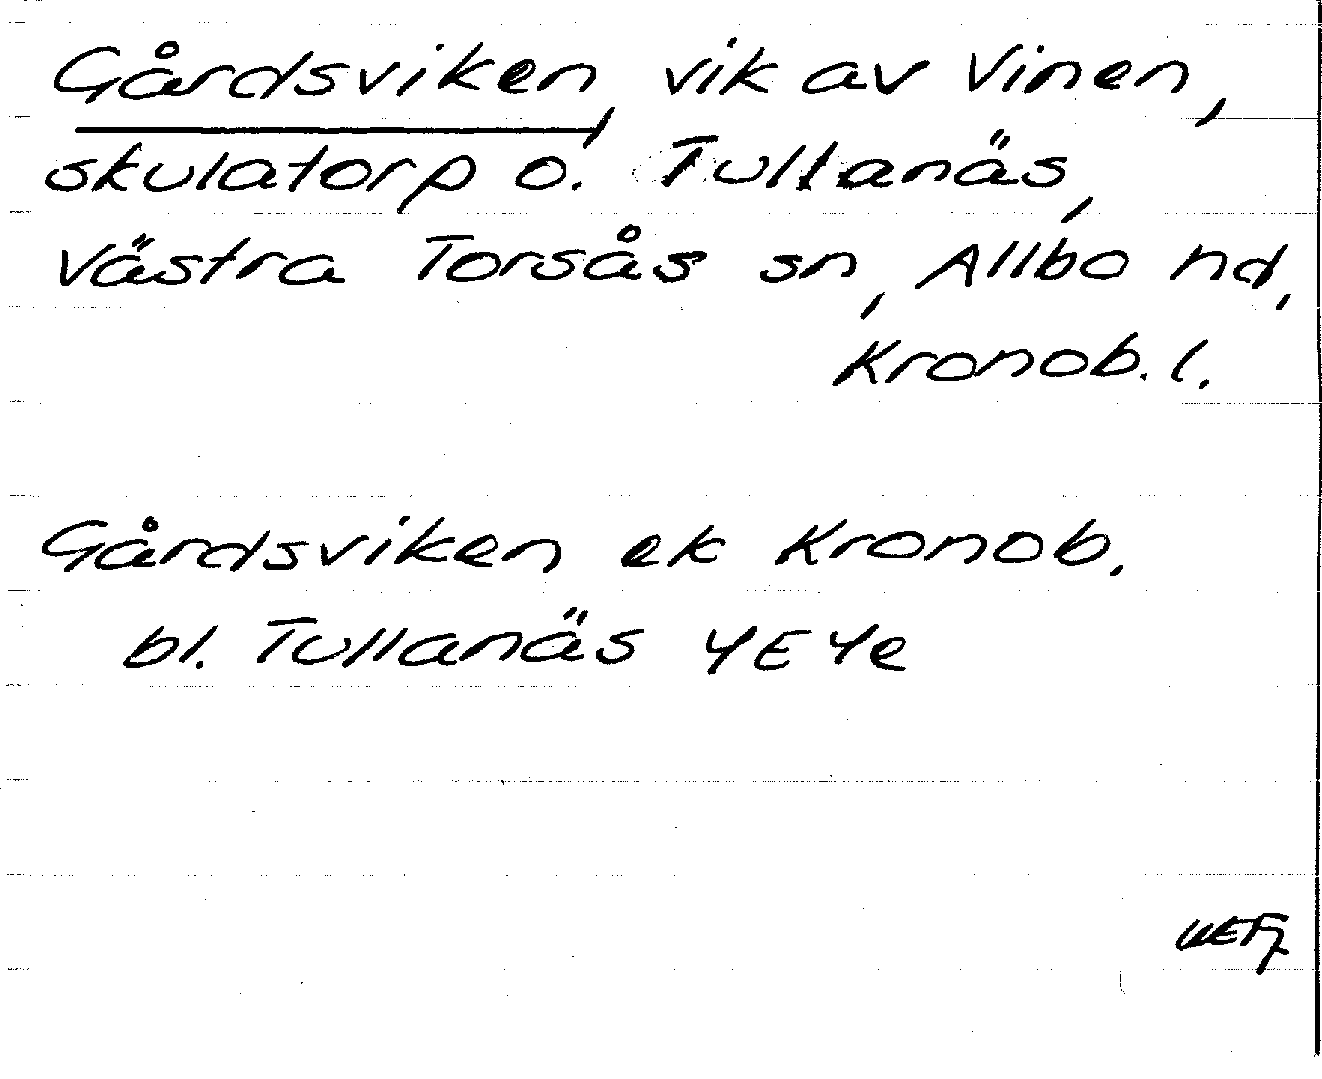 Gårdsviken, vik av Vinen,
skulatorp o. Tullanäs,
Västra Torsås sn, Allbo hd,
Kronob. l.
Gårdsviken ek Kronob.
bl. Tullanäs 4E4e